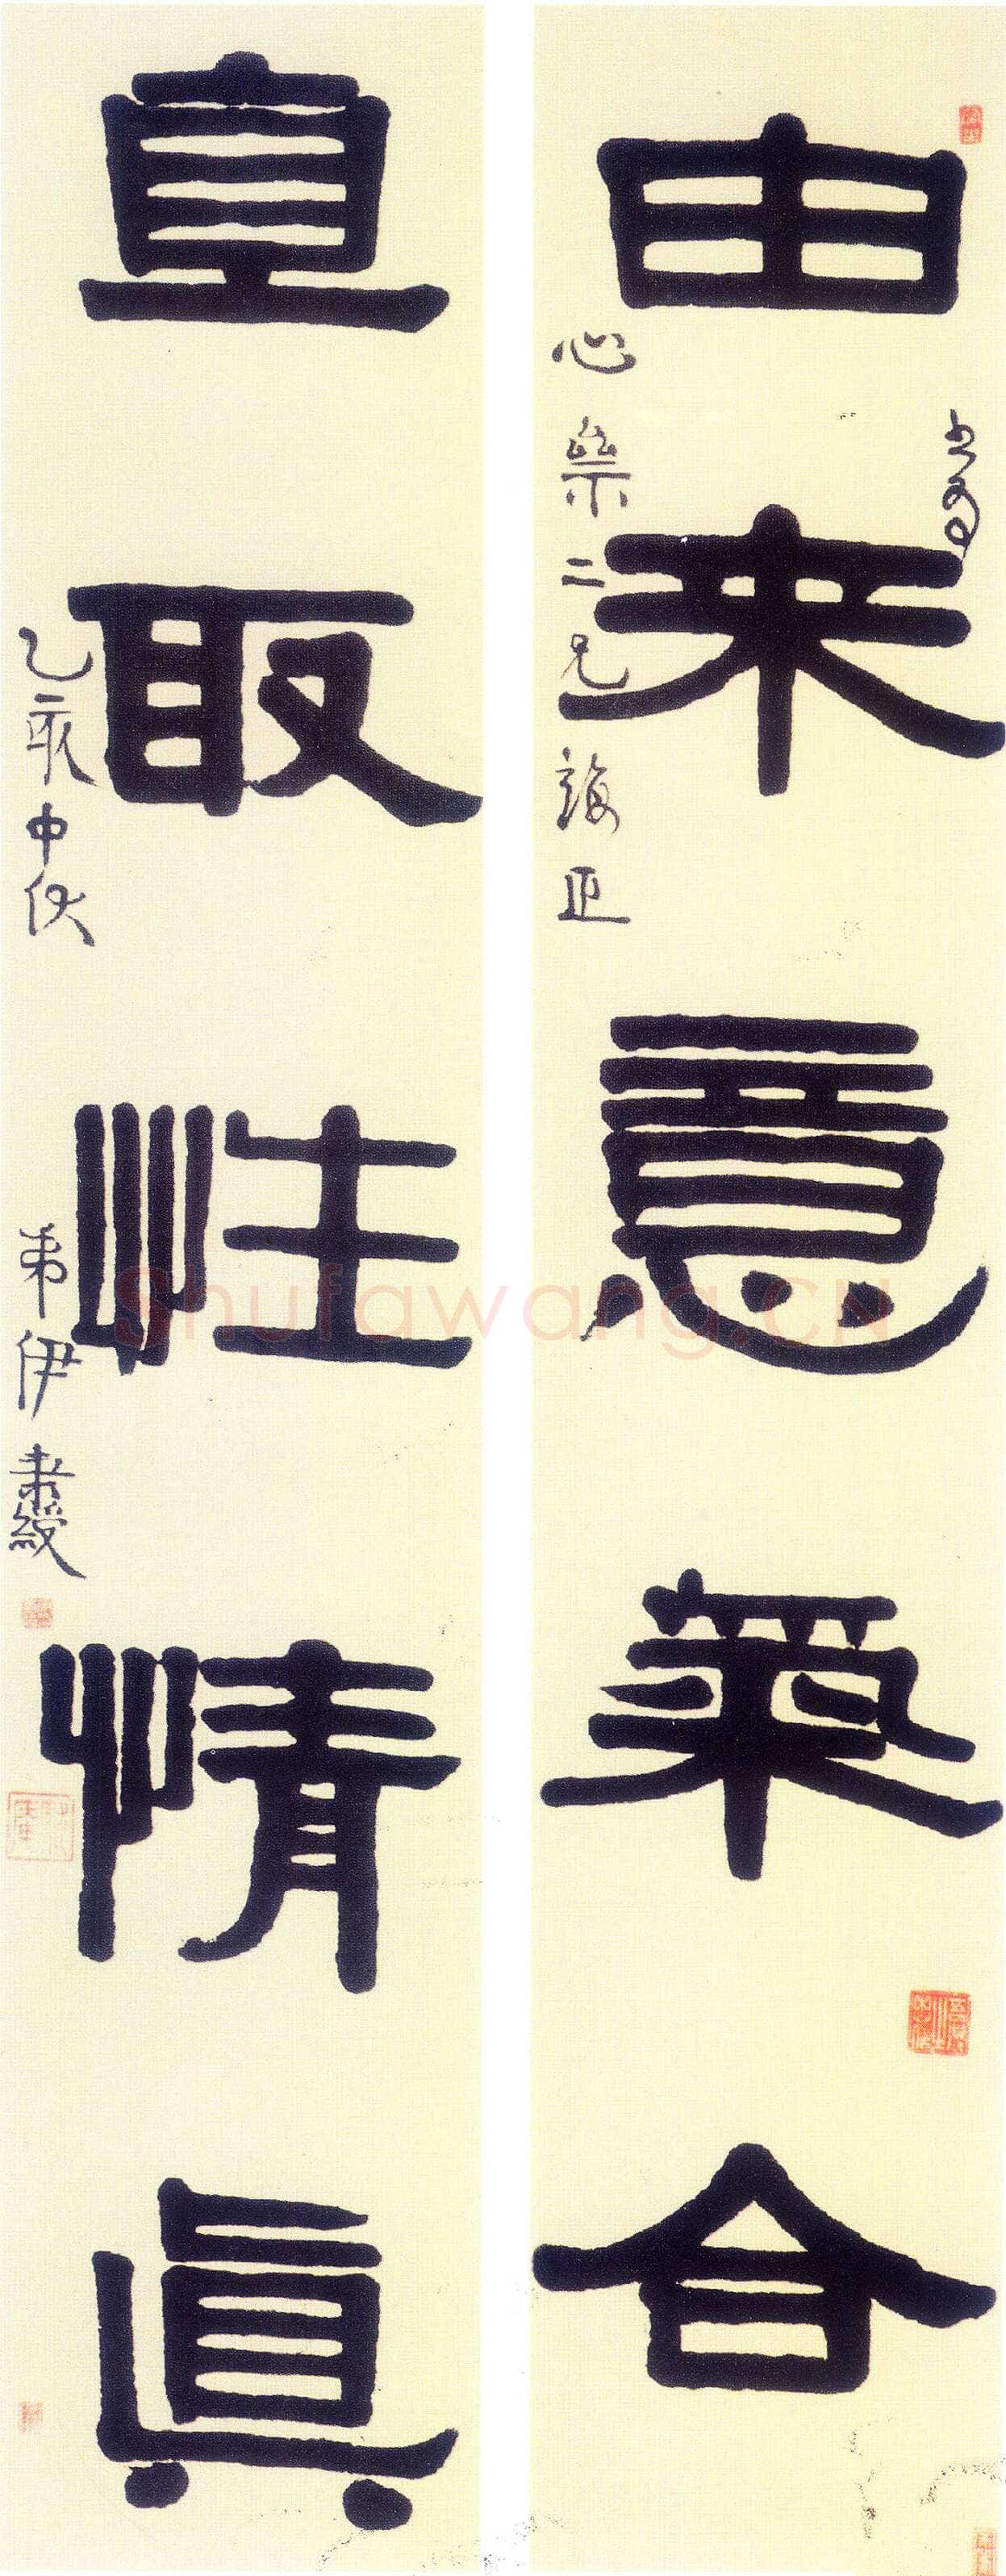 由来意氣合
心
二兄誨正
直取性情眞
乙亥中伏 弟伊秉綬
Shufawang.CN